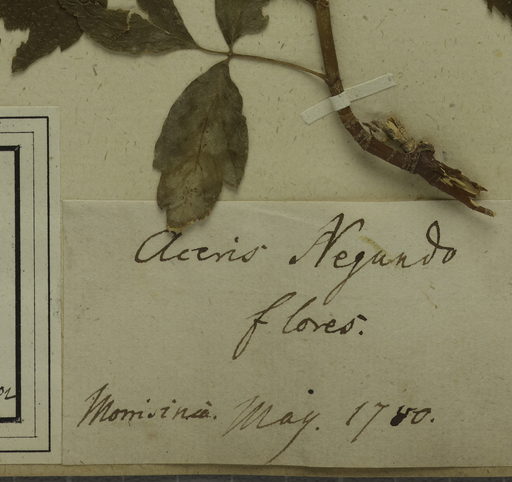 Aceris Negundo
flores.
Morrisinia. May. 1780.